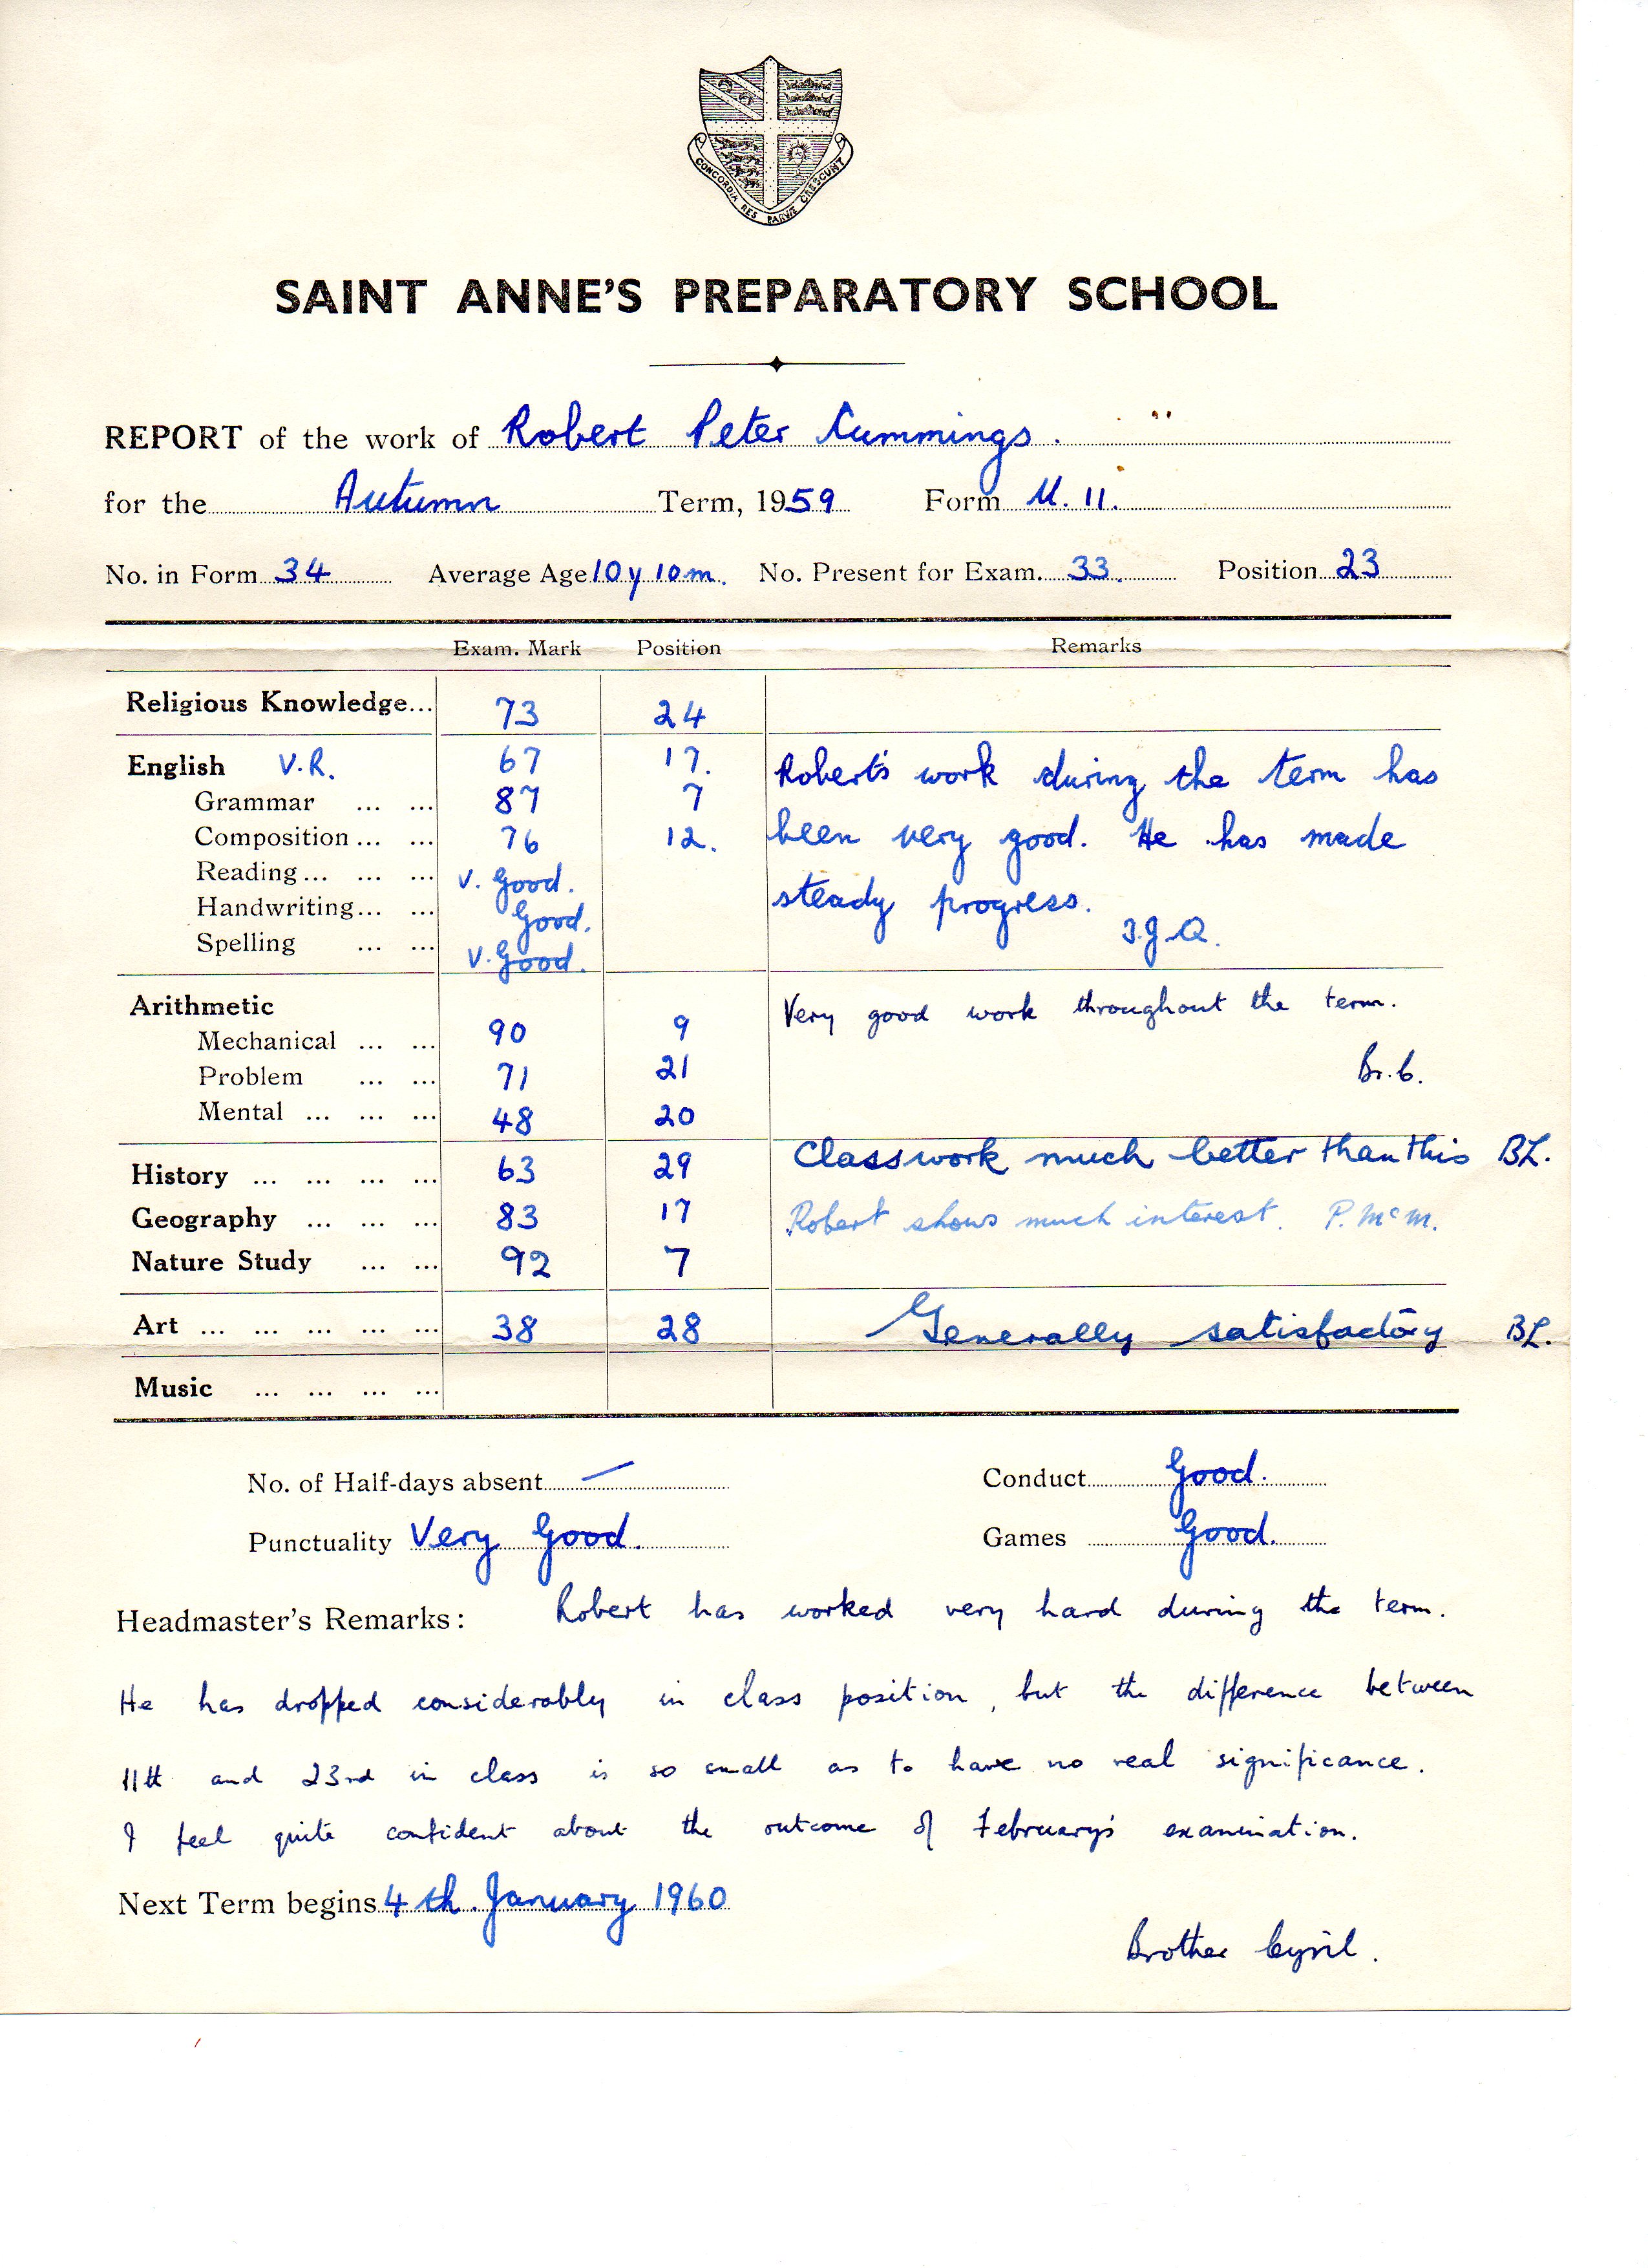 CONCORDIA RES PARVÆ CRESCUNT
SAINT ANNE'S PREPARATORY SCHOOL
REPORT of the work of Robert Peter Cummings.
for the Autumn Term, 1959 Form U. 11.
No. in Form 34 Average Age 10y 10m. No. Present for Exam. 33. Position 23
Exam. Mark Position Remarks
Religious Knowledge... 73 24
English V.R. 67 17. Robert's work during the term has
Grammar ... ... 87 7
Composition ... ... 76 12. been very good. He has made
Reading ... ... ... V. Good.
Handwriting... ... Good. steady progress.
Spelling ... ... V. Good. T.J.Q.
Arithmetic Very good work throughout the term.
Mechanical ... ... 90 9
Problem ... ... 71 21 Br. C.
Mental ... ... ... 48 20
History ... ... ... ... 63 29 Classwork much better than this BL.
Geography ... ... ... 83 17 Robert shows much interest. P. McM.
Nature Study ... ... 92 7
Art ... ... ... ... ... 38 28 Generally satisfactory BL.
Music ... ... ... ...
No. of Half-days absent — Conduct Good.
Punctuality Very Good. Games Good.
Headmaster's Remarks: Robert has worked very hard during the term.
He has dropped considerably in class position, but the difference between
11th and 23rd in class is so small as to have no real significance.
I feel quite confident about the outcome of February's examination.
Next Term begins 4th January 1960
Brother Cyril.